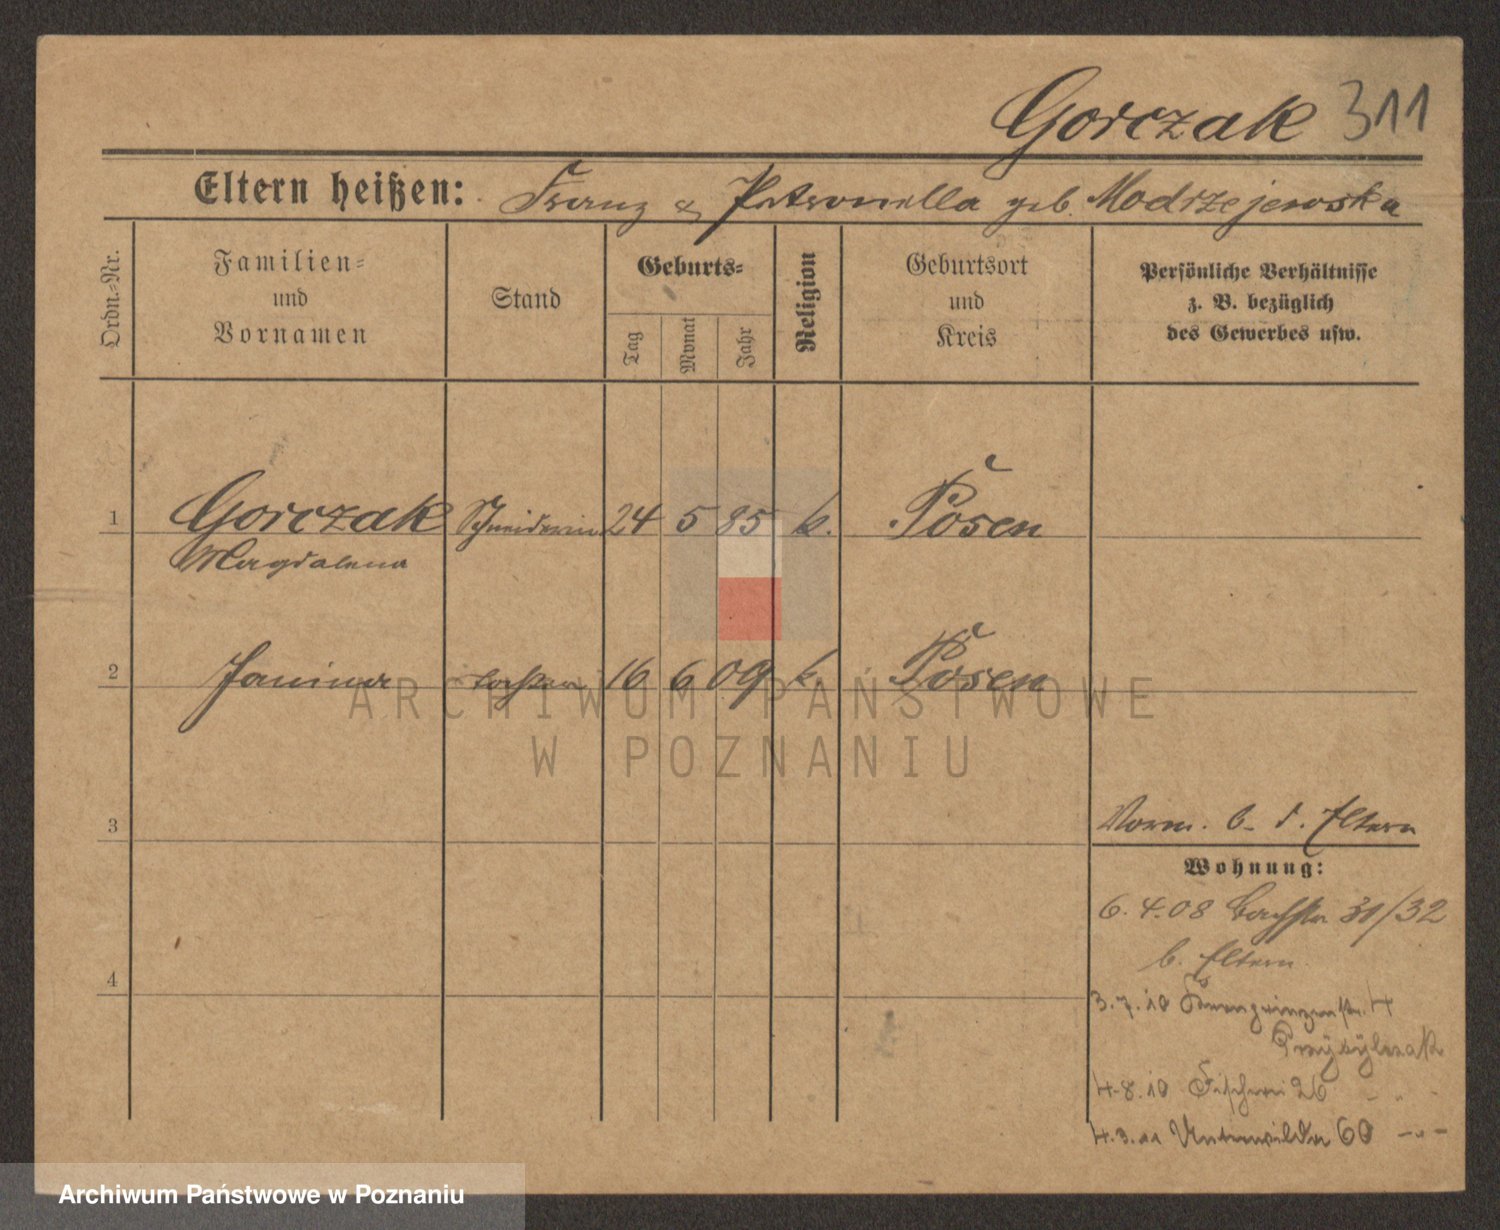 Gorczak 311
Eltern heißen: Franz & Petronella geb. Modrzejewska
Ordn.-Nr.
Familien-
und
Vornamen
Stand
Geburts-
Tag
Monat
Jahr
Religion
Geburtsort
und
Kreis
Persönliche Verhältnisse
z. B. bezüglich
des Gewerbes usw.
1 Gorczak Schneiderin 24 5 85 k. Posen
Magdalena
2 Janina Tochter 16 6 09 k. Posen
ARCHIWUM PAŃSTWOWE
W POZNANIU
3
Vorm. b. d. Eltern
Wohnung:
6.4.08 Bachstr 31/32
b. Eltern
4
3.7.10 Kronprinzenstr. 4
Przybylczak
4.8.10 Fischerei 26 - " -
4.3.11 Unterwilda 60 - " -
Archiwum Państwowe w Poznaniu